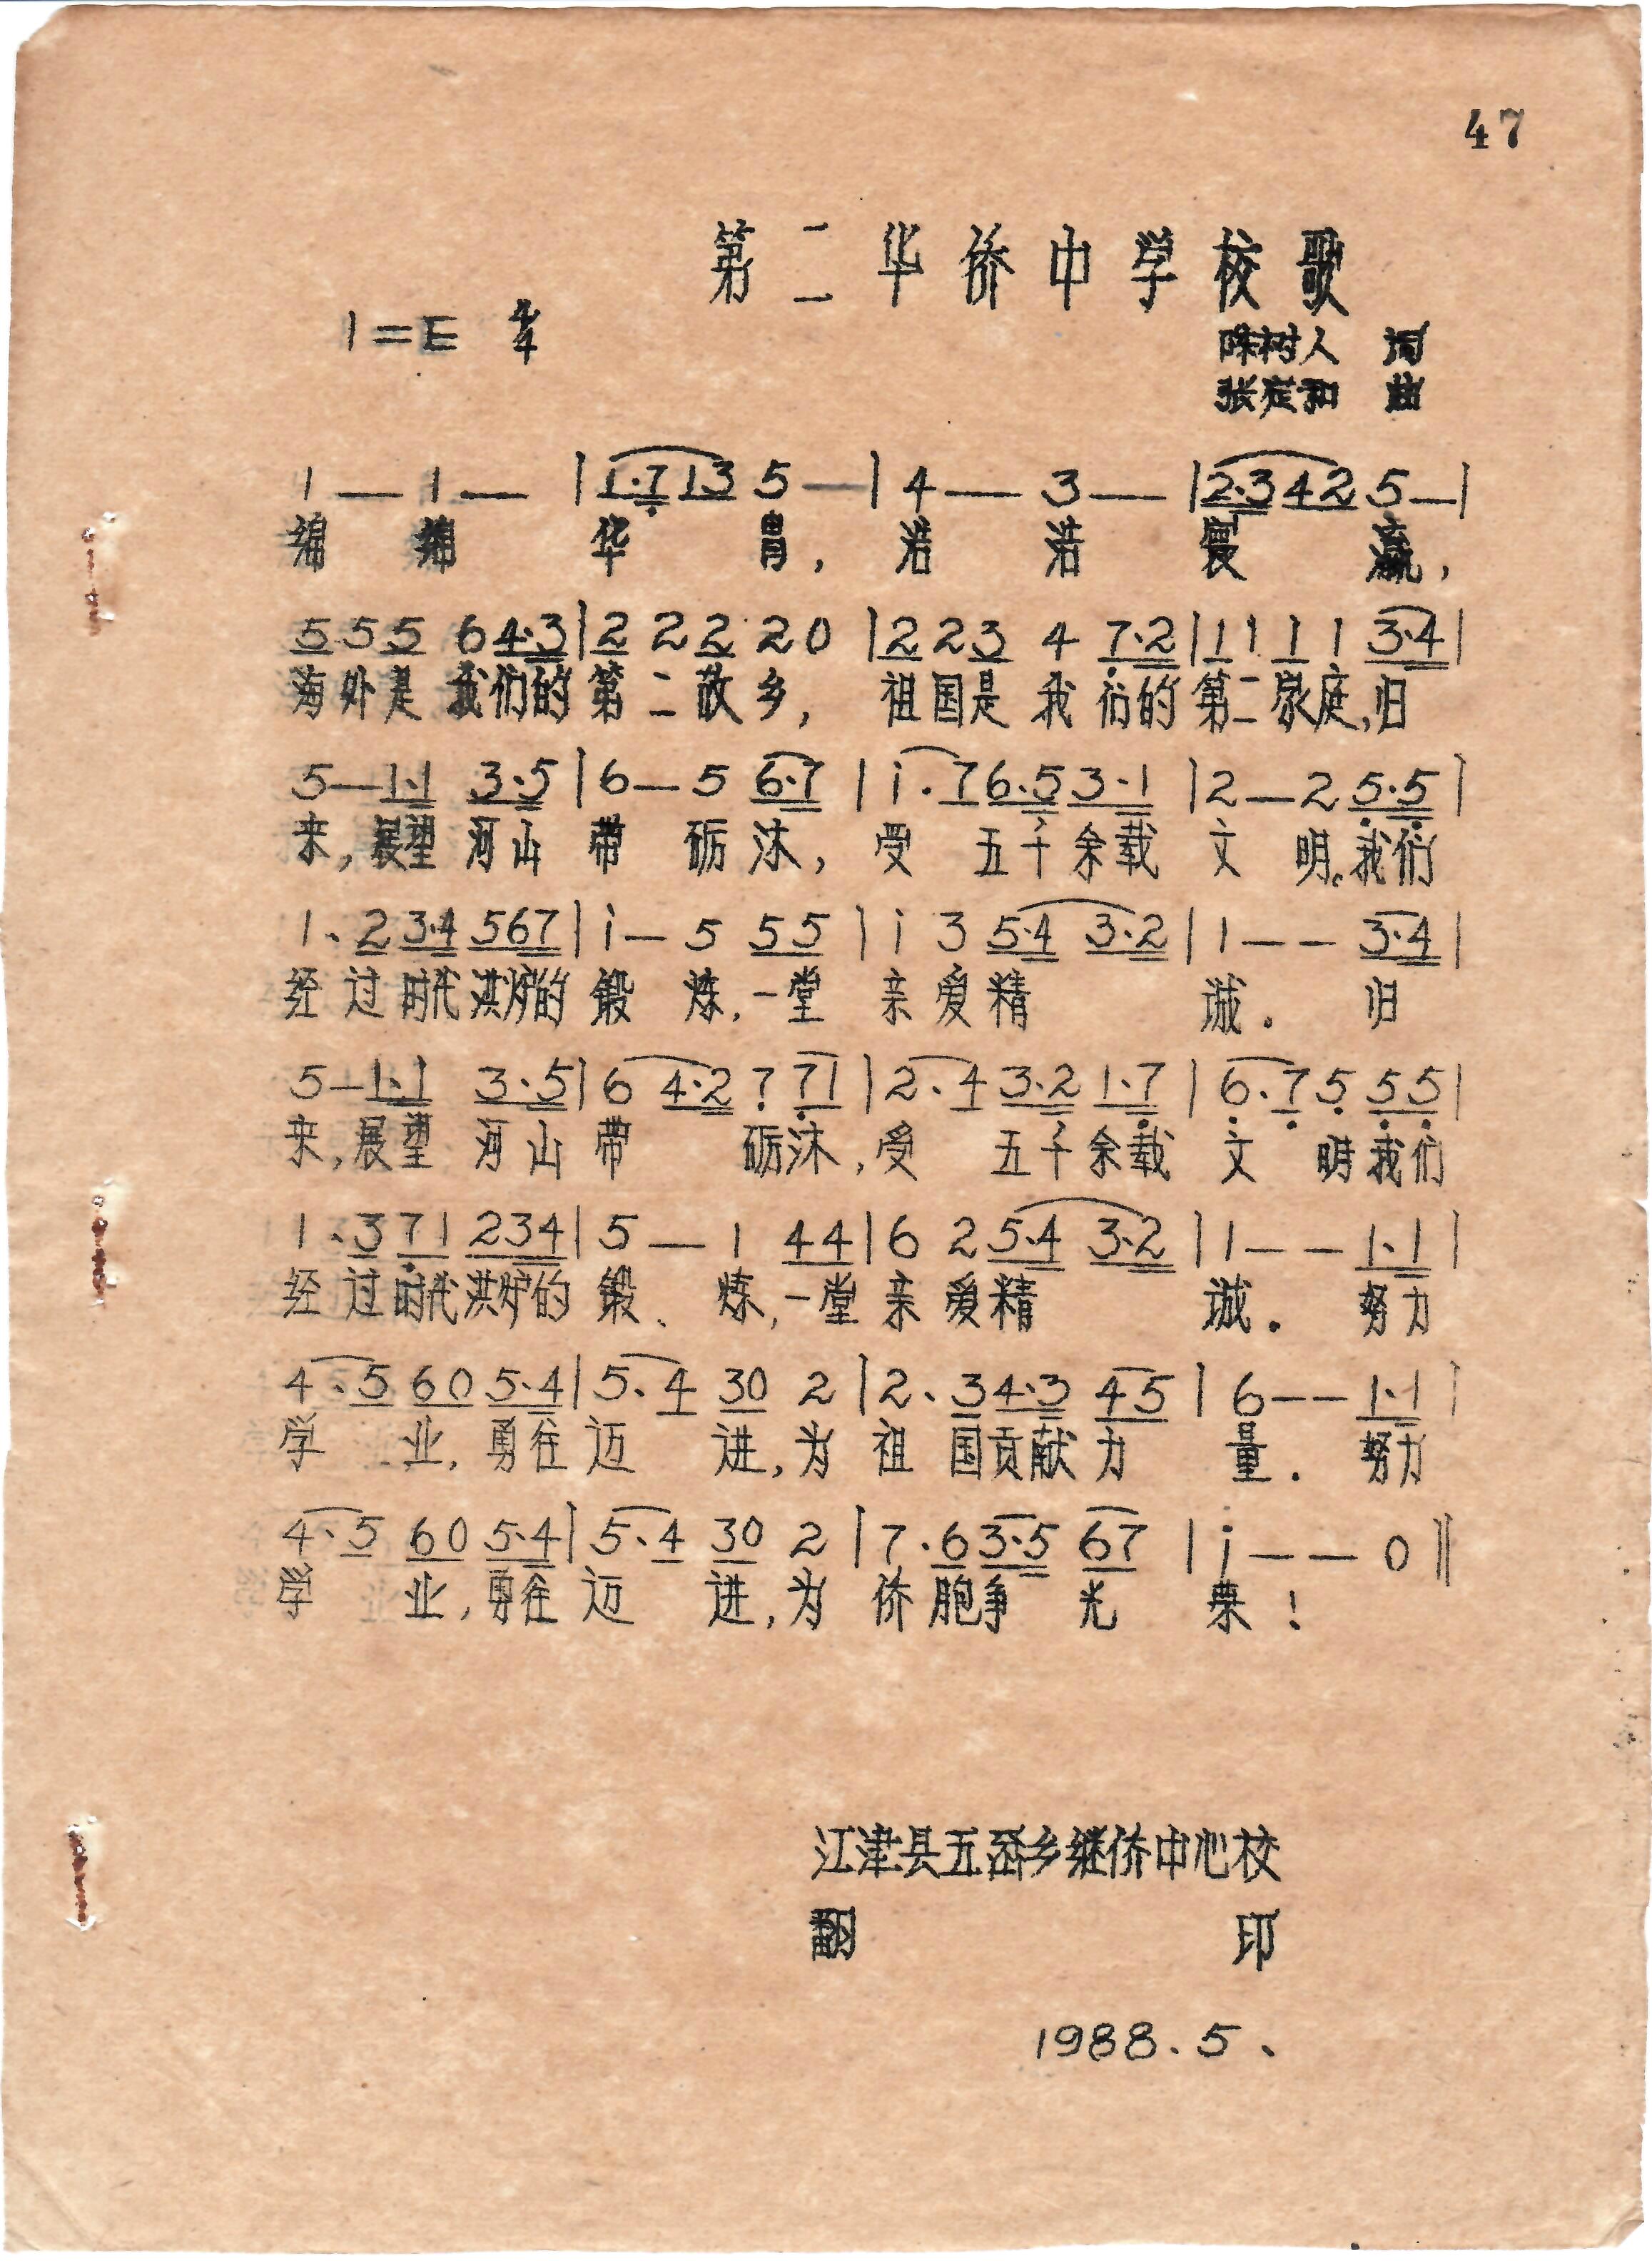 47
第二华侨中学校歌
1=E 4/4
陈树人 词
张定和 曲
1 — 1 — | 1·7 13 5 — | 4 — 3 — | 2·3 42 5 — |
绵 绵 华 胄, 浩 浩 寰 瀛,
5 5 5 6 4·3 | 2 2 2 2 0 | 2 2 3 4 7·2 | 1 1 1 1 3·4 |
海外是 我们的 第二故乡, 祖国是 我们的 第二家庭,归
5 — 1·1 3·5 | 6 — 5 6·7 | i·7 6·5 3·1 | 2 — 2 5·5 |
来,展望 河山 带 砺沐, 受 五千余载 文 明。我们
1·2 3·4 567 | i — 5 55 | i 3 5·4 3·2 | 1 — — 3·4 |
经过时代洪炉的 锻 炼,一堂 亲爱精 诚. 归
5 — 1·1 3·5 | 6 4·2 7 71 | 2·4 3·2 1·7 | 6·7 5 55 |
来,展望 河山 带 砺沐,受 五千余载 文 明我们
1·3 71 234 | 5 — 1 44 | 6 2 5·4 3·2 | 1 — — 1·1 |
经过时代洪炉的 锻、炼,一堂 亲爱精 诚. 努力
4·5 60 5·4 | 5·4 30 2 | 2·3 4·3 45 | 6 — — 1·1 |
学 业,勇往 迈 进,为 祖国贡献力 量. 努力
4·5 60 5·4 | 5·4 30 2 | 7·6 3·5 67 | i — — 0 ‖
学 业,勇往 迈 进,为 侨胞争 光 荣!
江津县五岔乡继侨中心校
翻 印
1988.5、